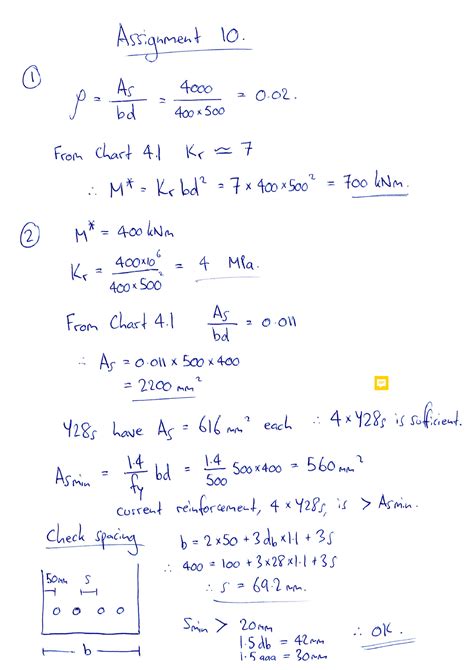 Assignment 10.
① ρ = As/bd = 4000/400×500 = 0.02.
From Chart 4.1 Kr ≃ 7
∴ M* = Kr bd² = 7 × 400 × 500² = 700 kNm.
② M* = 400 kNm
Kr = 400×10⁶/400×500² = 4 MPa.
From Chart 4.1 As/bd = 0.011
∴ As = 0.011 × 500 × 400
= 2200 mm²
Y28s have As = 616 mm² each ∴ 4 × Y28s is sufficient.
Asmin = 1.4/fy bd = 1.4/500 500×400 = 560 mm²
current reinforcement, 4 × Y28s, is > Asmin.
Check spacing
b = 2×50 + 3db×1.1 + 3s
∴ 400 = 100 + 3×28×1.1 + 3s
∴ s = 69.2 mm.
50mm s
b
Smin > 20mm
1.5db = 42mm
1.5 agg = 30mm
∴ OK.